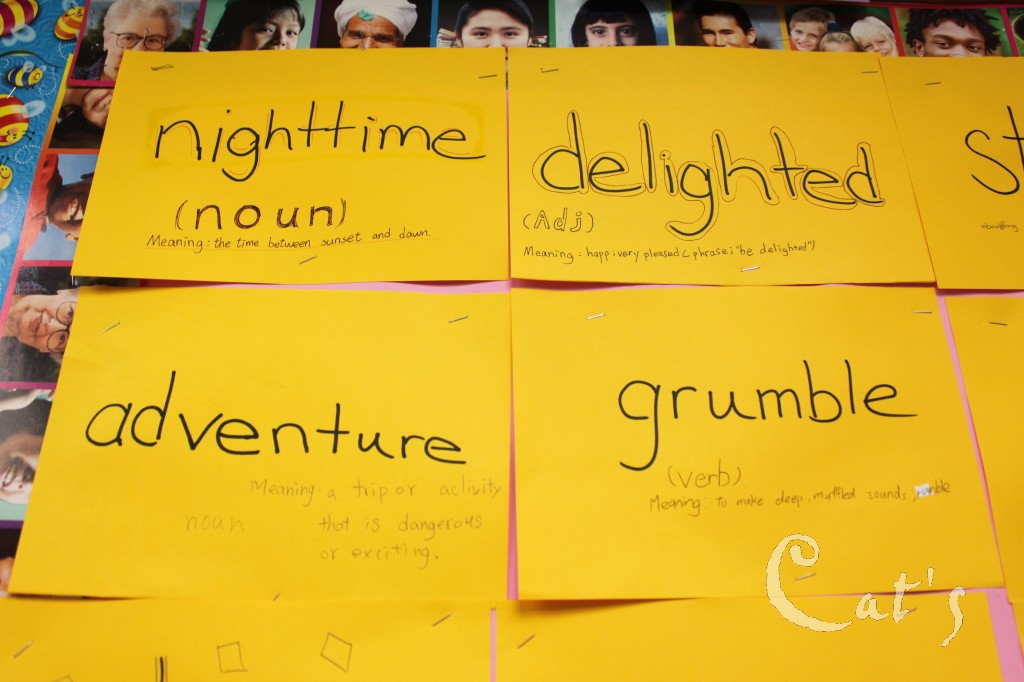 nighttime
(noun)
Meaning: the time between sunset and dawn.
delighted
(Adj)
Meaning: happ; very pleased < phrase; "be delighted")
st
adventure
Meaning: a trip or activity
noun
that is dangerous
or exciting.
grumble
(verb)
Meaning: to make deep, muffled sounds,
Cat's